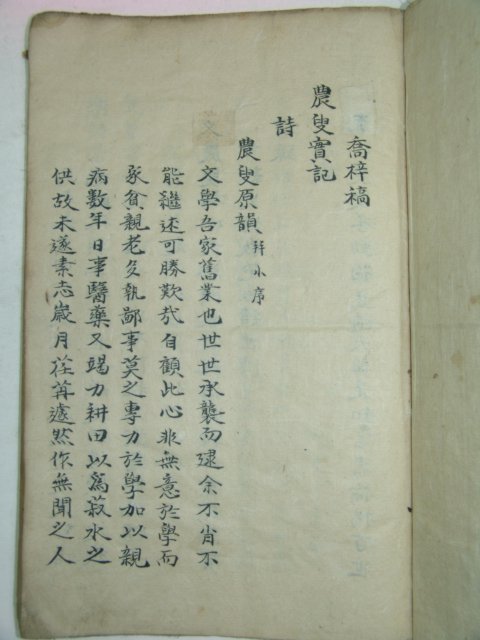 喬梓稿
農叟實記
詩
農叟原韻 幷小序
文學吾家舊業也世世承襲而逮余不肖不
能繼述可勝歎哉自顧此心非無意於學而
家貧親老多執鄙事莫之專力於學加以親
病數年日事醫藥又竭力耕田以爲菽水之
供故未遂素志歲月荏苒遽然作無聞之人